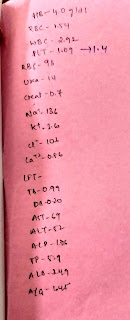 HB - 4.0 g/dl
RBC - 1.54
WBC - 2.92
PLT - 1.09 → 1.4
RBS - 98
Urea - 14
Creat - 0.7
Na+ - 136
K+ - 3.6
Cl- - 102
LFT -
TB - 0.99
DB - 0.20
AST - 69
ALT - 52
ALP - 136
TP - 5.9
ALB - 3.49
A/G - 1.45